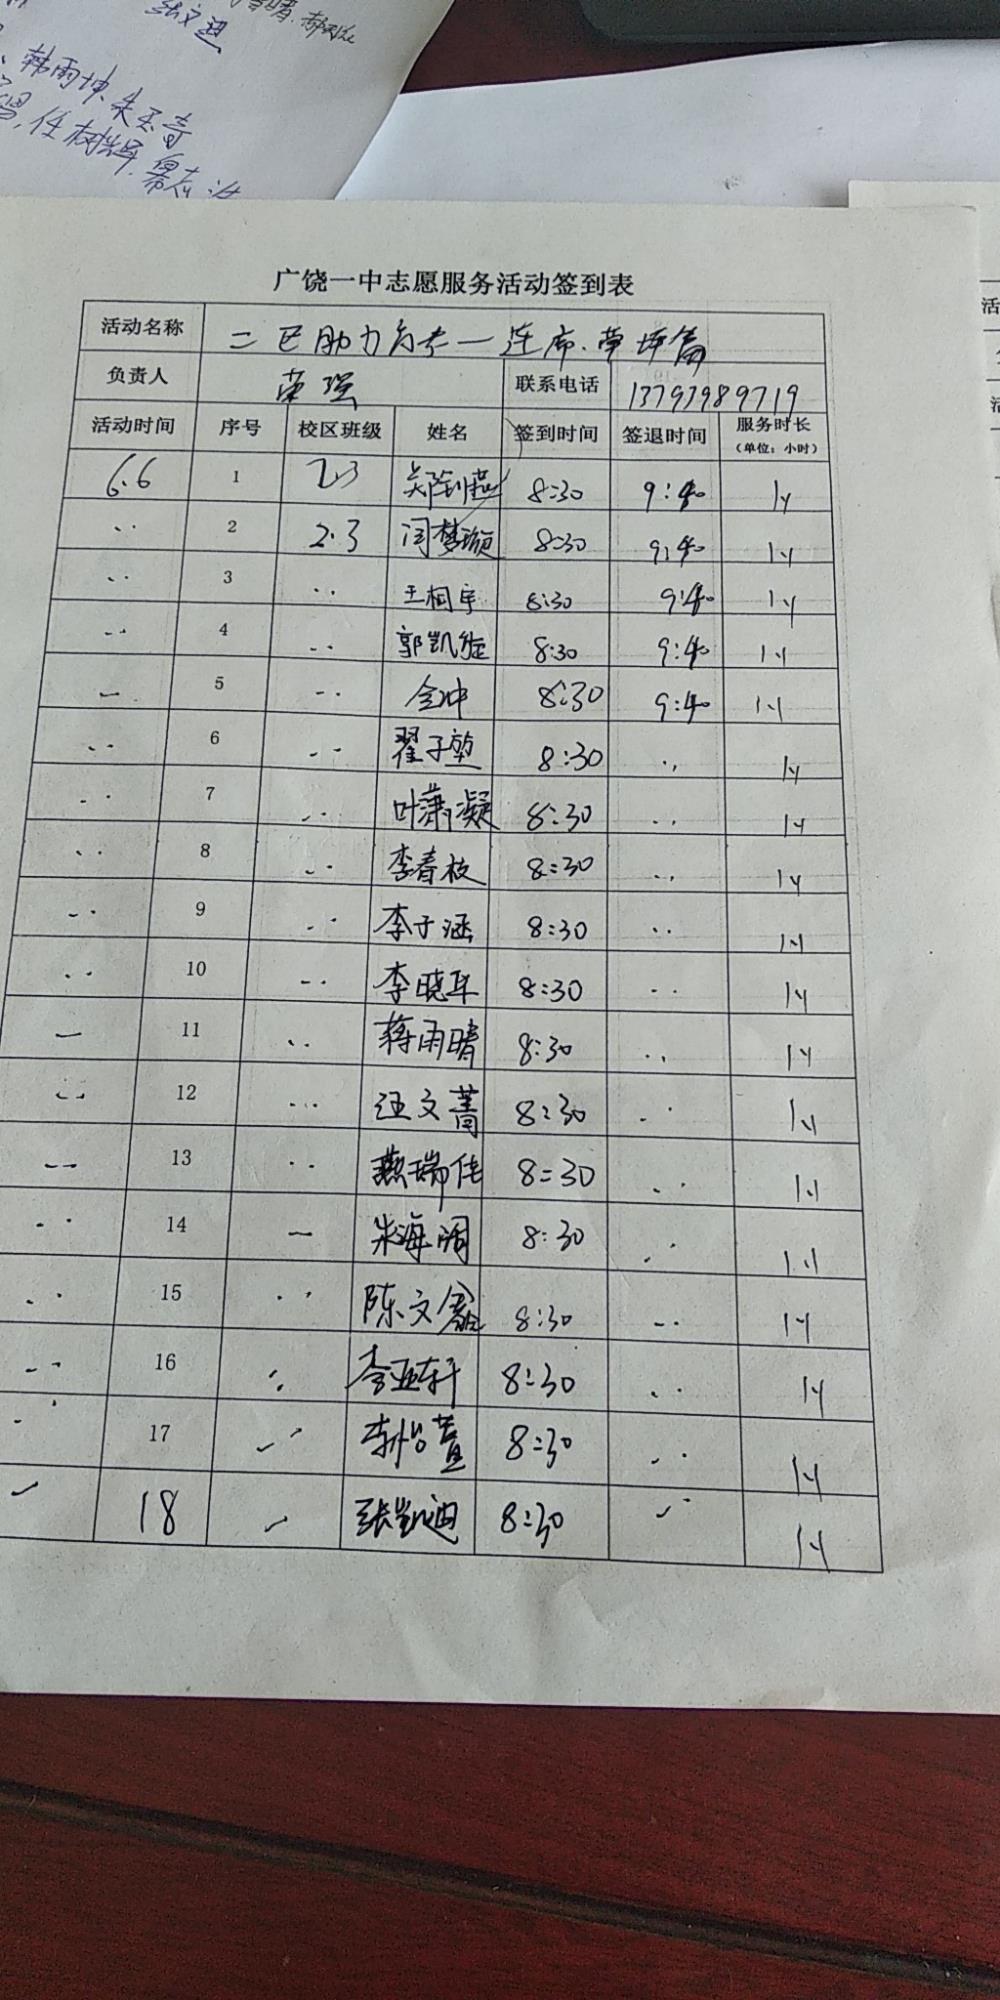 张文
韩雨坤、朱玉奇
任树辉
广饶一中志愿服务活动签到表
活动名称 二区助力高考一连廊.草坪篇
负责人 荣强 联系电话 13793989719
活动时间 序号 校区班级 姓名 签到时间 签退时间 服务时长
(单位:小时)
6.6 1 2.3 8:30 9:40 1h
2 2.3 闫梦璇 8:30 9:40 1h
3 王相宇 8:30 9:40 1h
4 郭凯 8:30 9:40 1h
5 8:30 9:40 1h
6 翟子堃 8:30 1h
7 叶潇凝 8:30 1h
8 李春枝 8:30 1h
9 李子涵 8:30 1h
10 李晓 8:30 1h
11 蒋雨晴 8:30 1h
12 汪文菁 8:30 1h
13 燕瑞佳 8:30 1h
14 朱海阔 8:30 1h
15 陈文 8:30 1h
16 李亚轩 8:30 1h
17 李怡萱 8:30 1h
18 张凯迪 8:30 1h